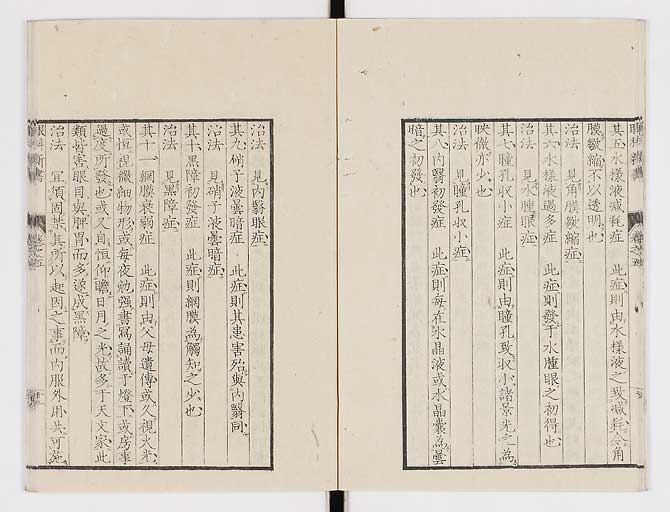 其五水樣液減耗症　此症則由水樣液之致減耗令角
膜皺縮不以透明也
治法　見角膜皺縮症
其六水樣液過多症　此症則發于水腫眼之初得也
治法　見水腫眼症
其七瞳孔收小症　此症則由瞳孔致收小諸景光之為
映徹亦少也
治法　見瞳孔收小症
其八內翳初發症　此症則每在水晶液或水晶囊為曇
暗之初發也
治法　見內翳眼症
其九硝子液曇暗症　此症則其患害殆與內翳同
治法　見硝子液曇暗症
其十黑障初發症　此症則網膜為觸知之少也
治法　見黑障症
其十一網膜衰弱症　此症則由父母遺傳或久視火光
或恒視微細物形或每夜勉強書寫誦讀于燈下或房事
過度所發也或又自恒仰瞻日月之光故多于天文家此
類皆害眼目與脾胃而多遂成黑障
治法　宜須固禁其所以起因之事而內服外用共可施
眼科新書